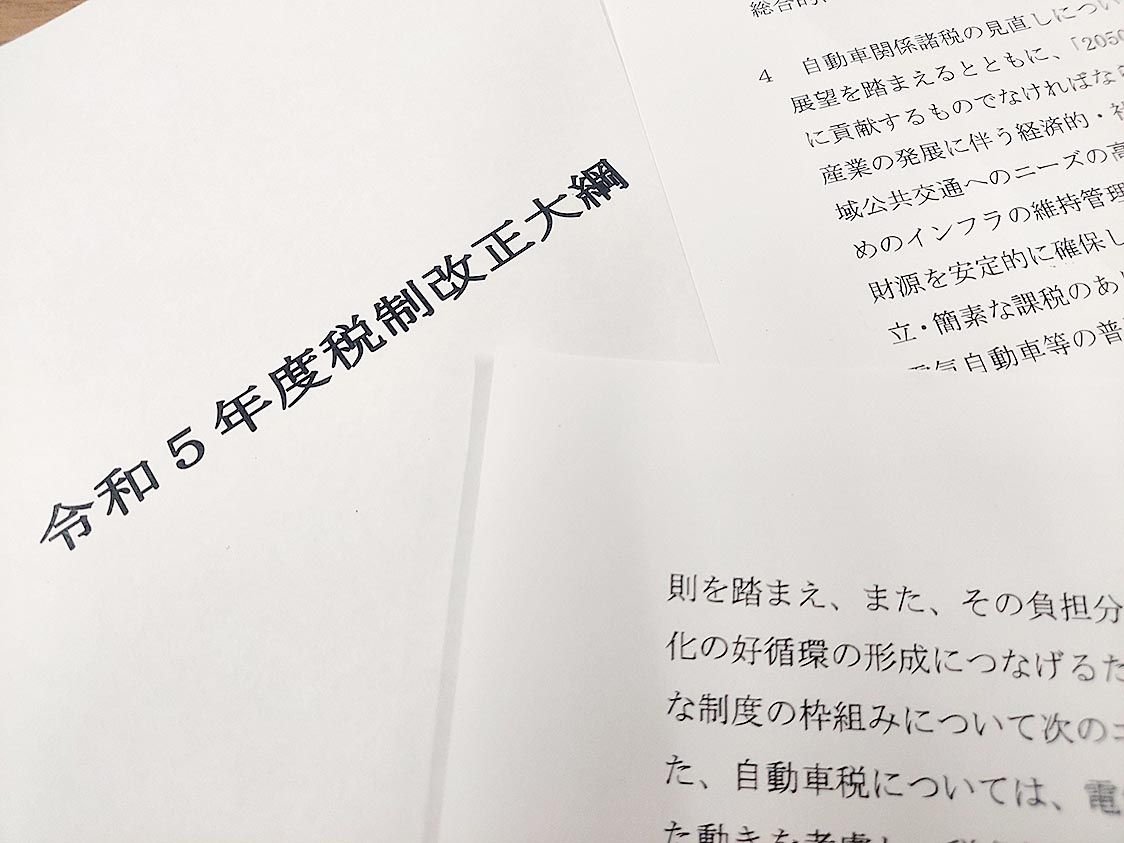 令和５年度税制改正大綱
総合的に
４　自動車関係諸税の見直しについ
展望を踏まえるとともに、「2050
に貢献するものでなければなら
産業の発展に伴う経済的・社
域公共交通へのニーズの高
めのインフラの維持管理
財源を安定的に確保し
立・簡素な課税のあり
電気自動車等の普
則を踏まえ、また、その負担分
化の好循環の形成につなげるた
な制度の枠組みについて次の
た、自動車税については、電
た動きを考慮し